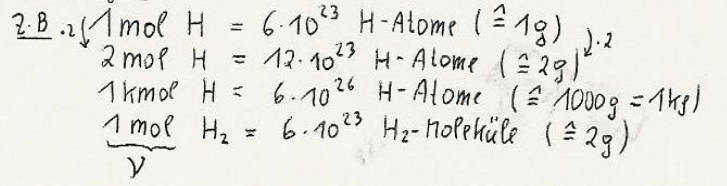 z.B .2 1 mol H = 6·10²³ H-Atome (≙ 1g)
2 mol H = 12·10²³ H-Atome (≙ 2g) .2
1 kmol H = 6·10²⁶ H-Atome (≙ 1000g = 1kg)
1 mol H₂ = 6·10²³ H₂-Moleküle (≙ 2g)
ν